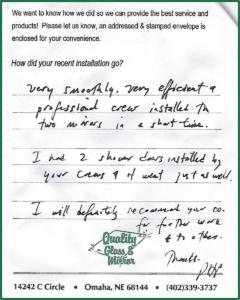 We want to know how we did so we can provide the best service and
products! Please let us know, an addressed & stamped envelope is
enclosed for your convenience.
How did your recent installation go?
Very smoothly. Very efficient &
professional crew installed the
two mirrors in a short time.
I had 2 shower doors installed by
your crews & it went just as well.
I will definitely recommend your co.
for further work
& to others.
Thanks.
Quality
Glass &
Mirror
14242 C Circle • Omaha, NE 68144 • (402)339-3737